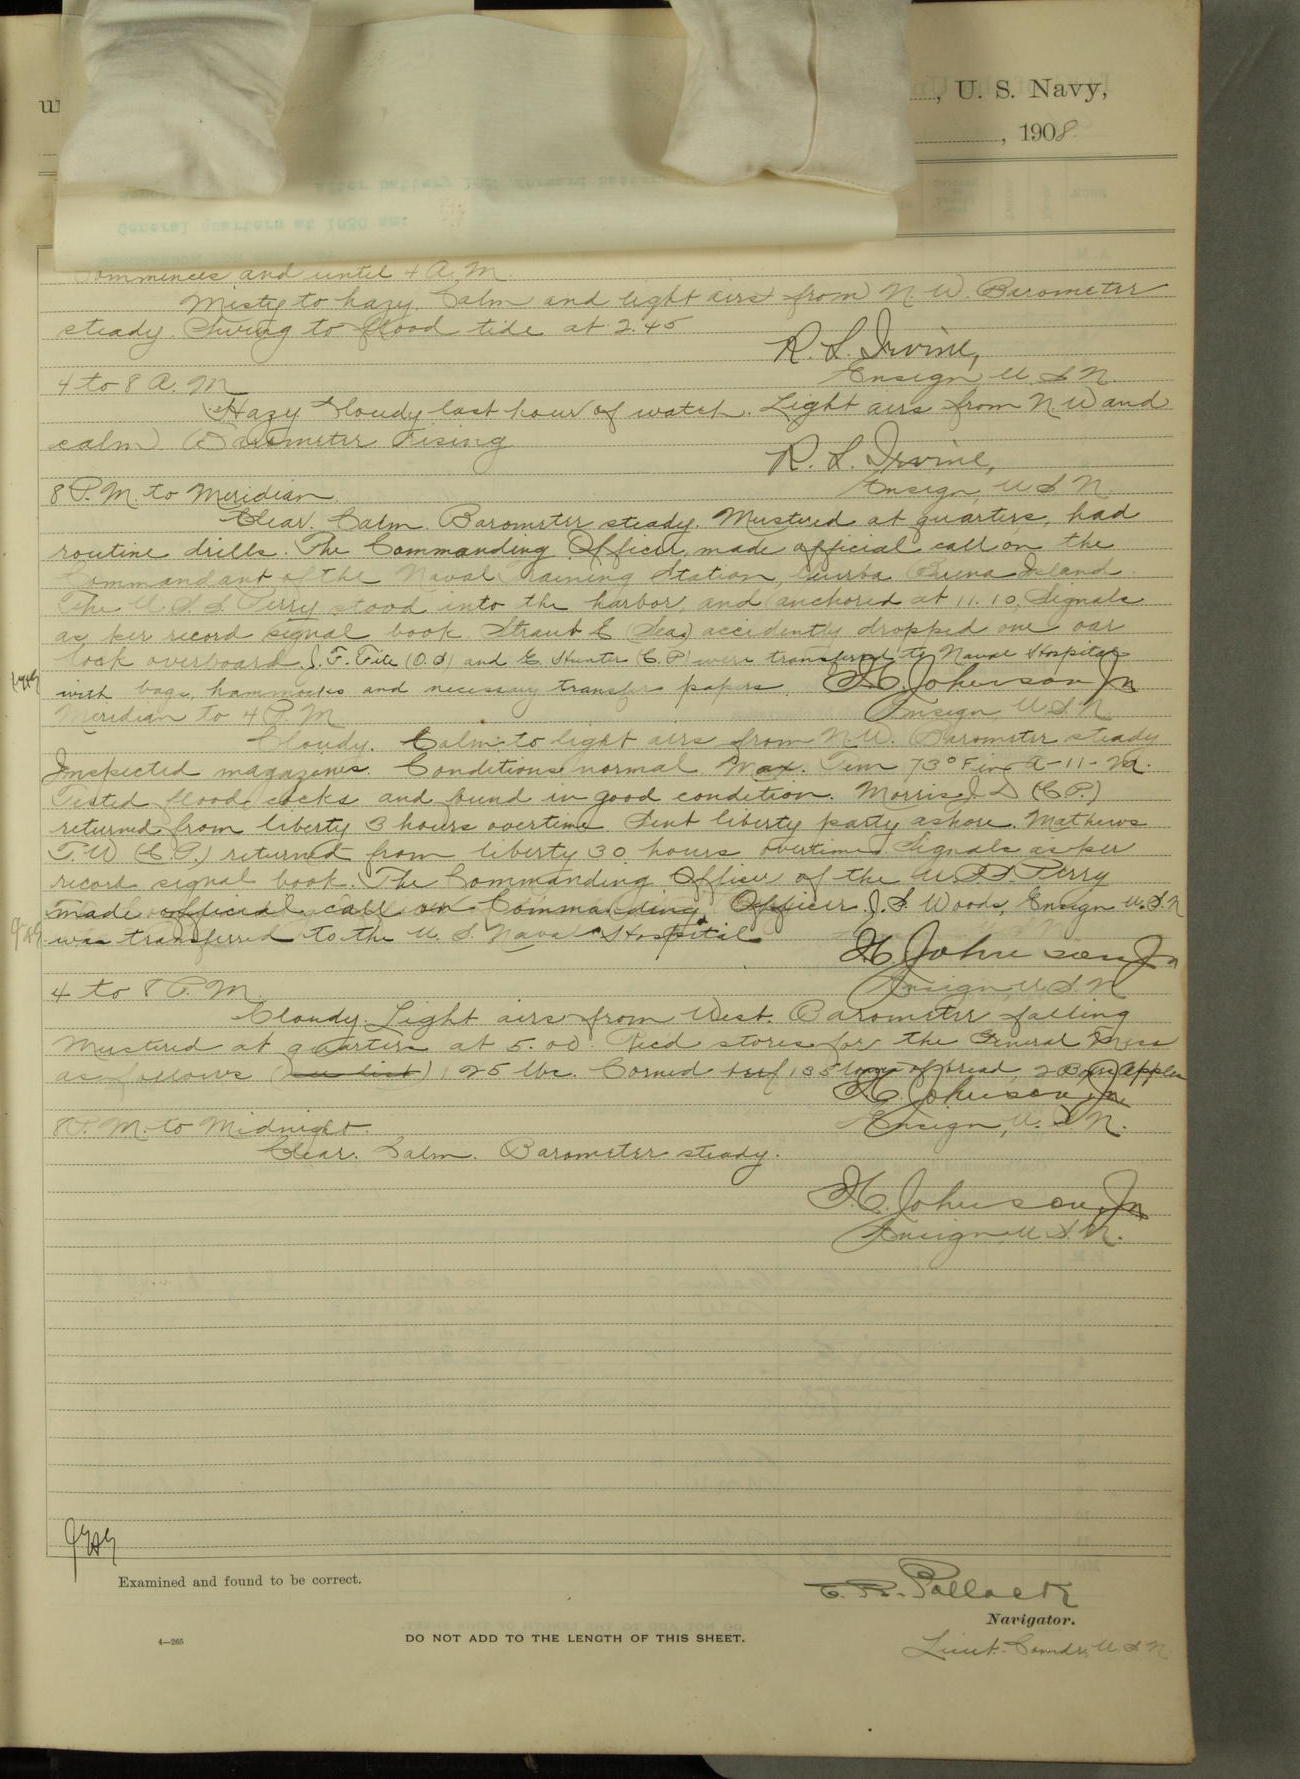 , U. S. Navy,
, 1908
General quarters at 1030 am.
Commences and until 4 A.M.
Misty to hazy. Calm and light airs from N.W. Barometer
steady. Swung to flood tide at 2.45
R. S. Irvine,
Ensign, U.S.N.
4 to 8 A.M.
Hazy Cloudy last hour of watch. Light airs from N.W and
calm. Barometer rising
R. S. Irvine,
Ensign, U.S.N.
8 P.M. to Meridian.
Clear. Calm. Barometer steady. Mustered at quarters, had
routine drills. The Commanding Officer made official call on the
Commandant of the Naval Training Station, Buena Island.
The U.S.S. Perry stood into the harbor, and anchored at 11.10, Signals
as per record signal book. Straub E (Sea) accidently dropped one oar
lock overboard. J. F. Fite (O.S) and E. Hunter (C.P) were transferred to Naval Hospital
with bags, hammocks and necessary transfer papers.
H. Johnson Jr
Ensign, U.S.N.
Meridian to 4 P.M.
Cloudy. Calm to light airs from N.W. Barometer steady
Inspected magazines. Conditions normal Max. Tem 73° F in A-11-M.
Tested flood cocks and found in good condition. Morris J. D (C.P.)
returned from liberty 3 hours overtime. Sent liberty party ashore. Mathews
T.W (C.P.) returned from liberty 30 hours overtime. Signals as per
record signal book. The Commanding Officer of the U.S.S. Perry
made official call on Commanding Officer. J. S. Woods, Ensign U.S.N
was transferred to the U. S. Naval Hospital
H. Johnson Jr
Ensign, U.S.N.
4 to 8 P.M.
Cloudy. Light airs from West. Barometer falling
Mustered at quarters at 5.00. Recd stores for the General Mess
as follows (see list) 125 lbs. Corned beef 135 loaves of bread, 2 Boxes Apples
H. Johnson Jr.
Ensign, U.S.N.
8 P.M. to Midnight.
Clear. Calm. Barometer steady.
H. Johnson, Jr.
Ensign, U.S.N.
Examined and found to be correct.
C. R. Pollock
Navigator.
4—265
DO NOT ADD TO THE LENGTH OF THIS SHEET.
Lieut. Comdr, U.S.N.